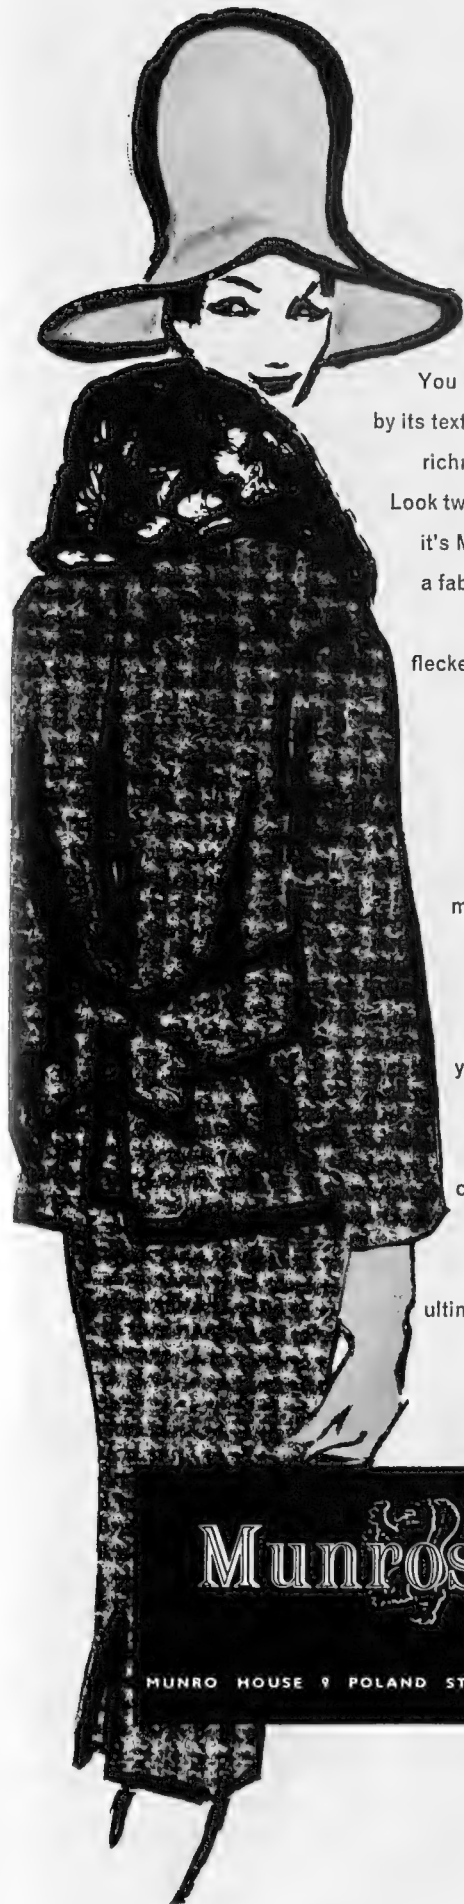 You
by its text
richn
Look tw
it's M
a fab
flecke
m
y
c
ultim
Munros
MUNRO HOUSE 9 POLAND ST